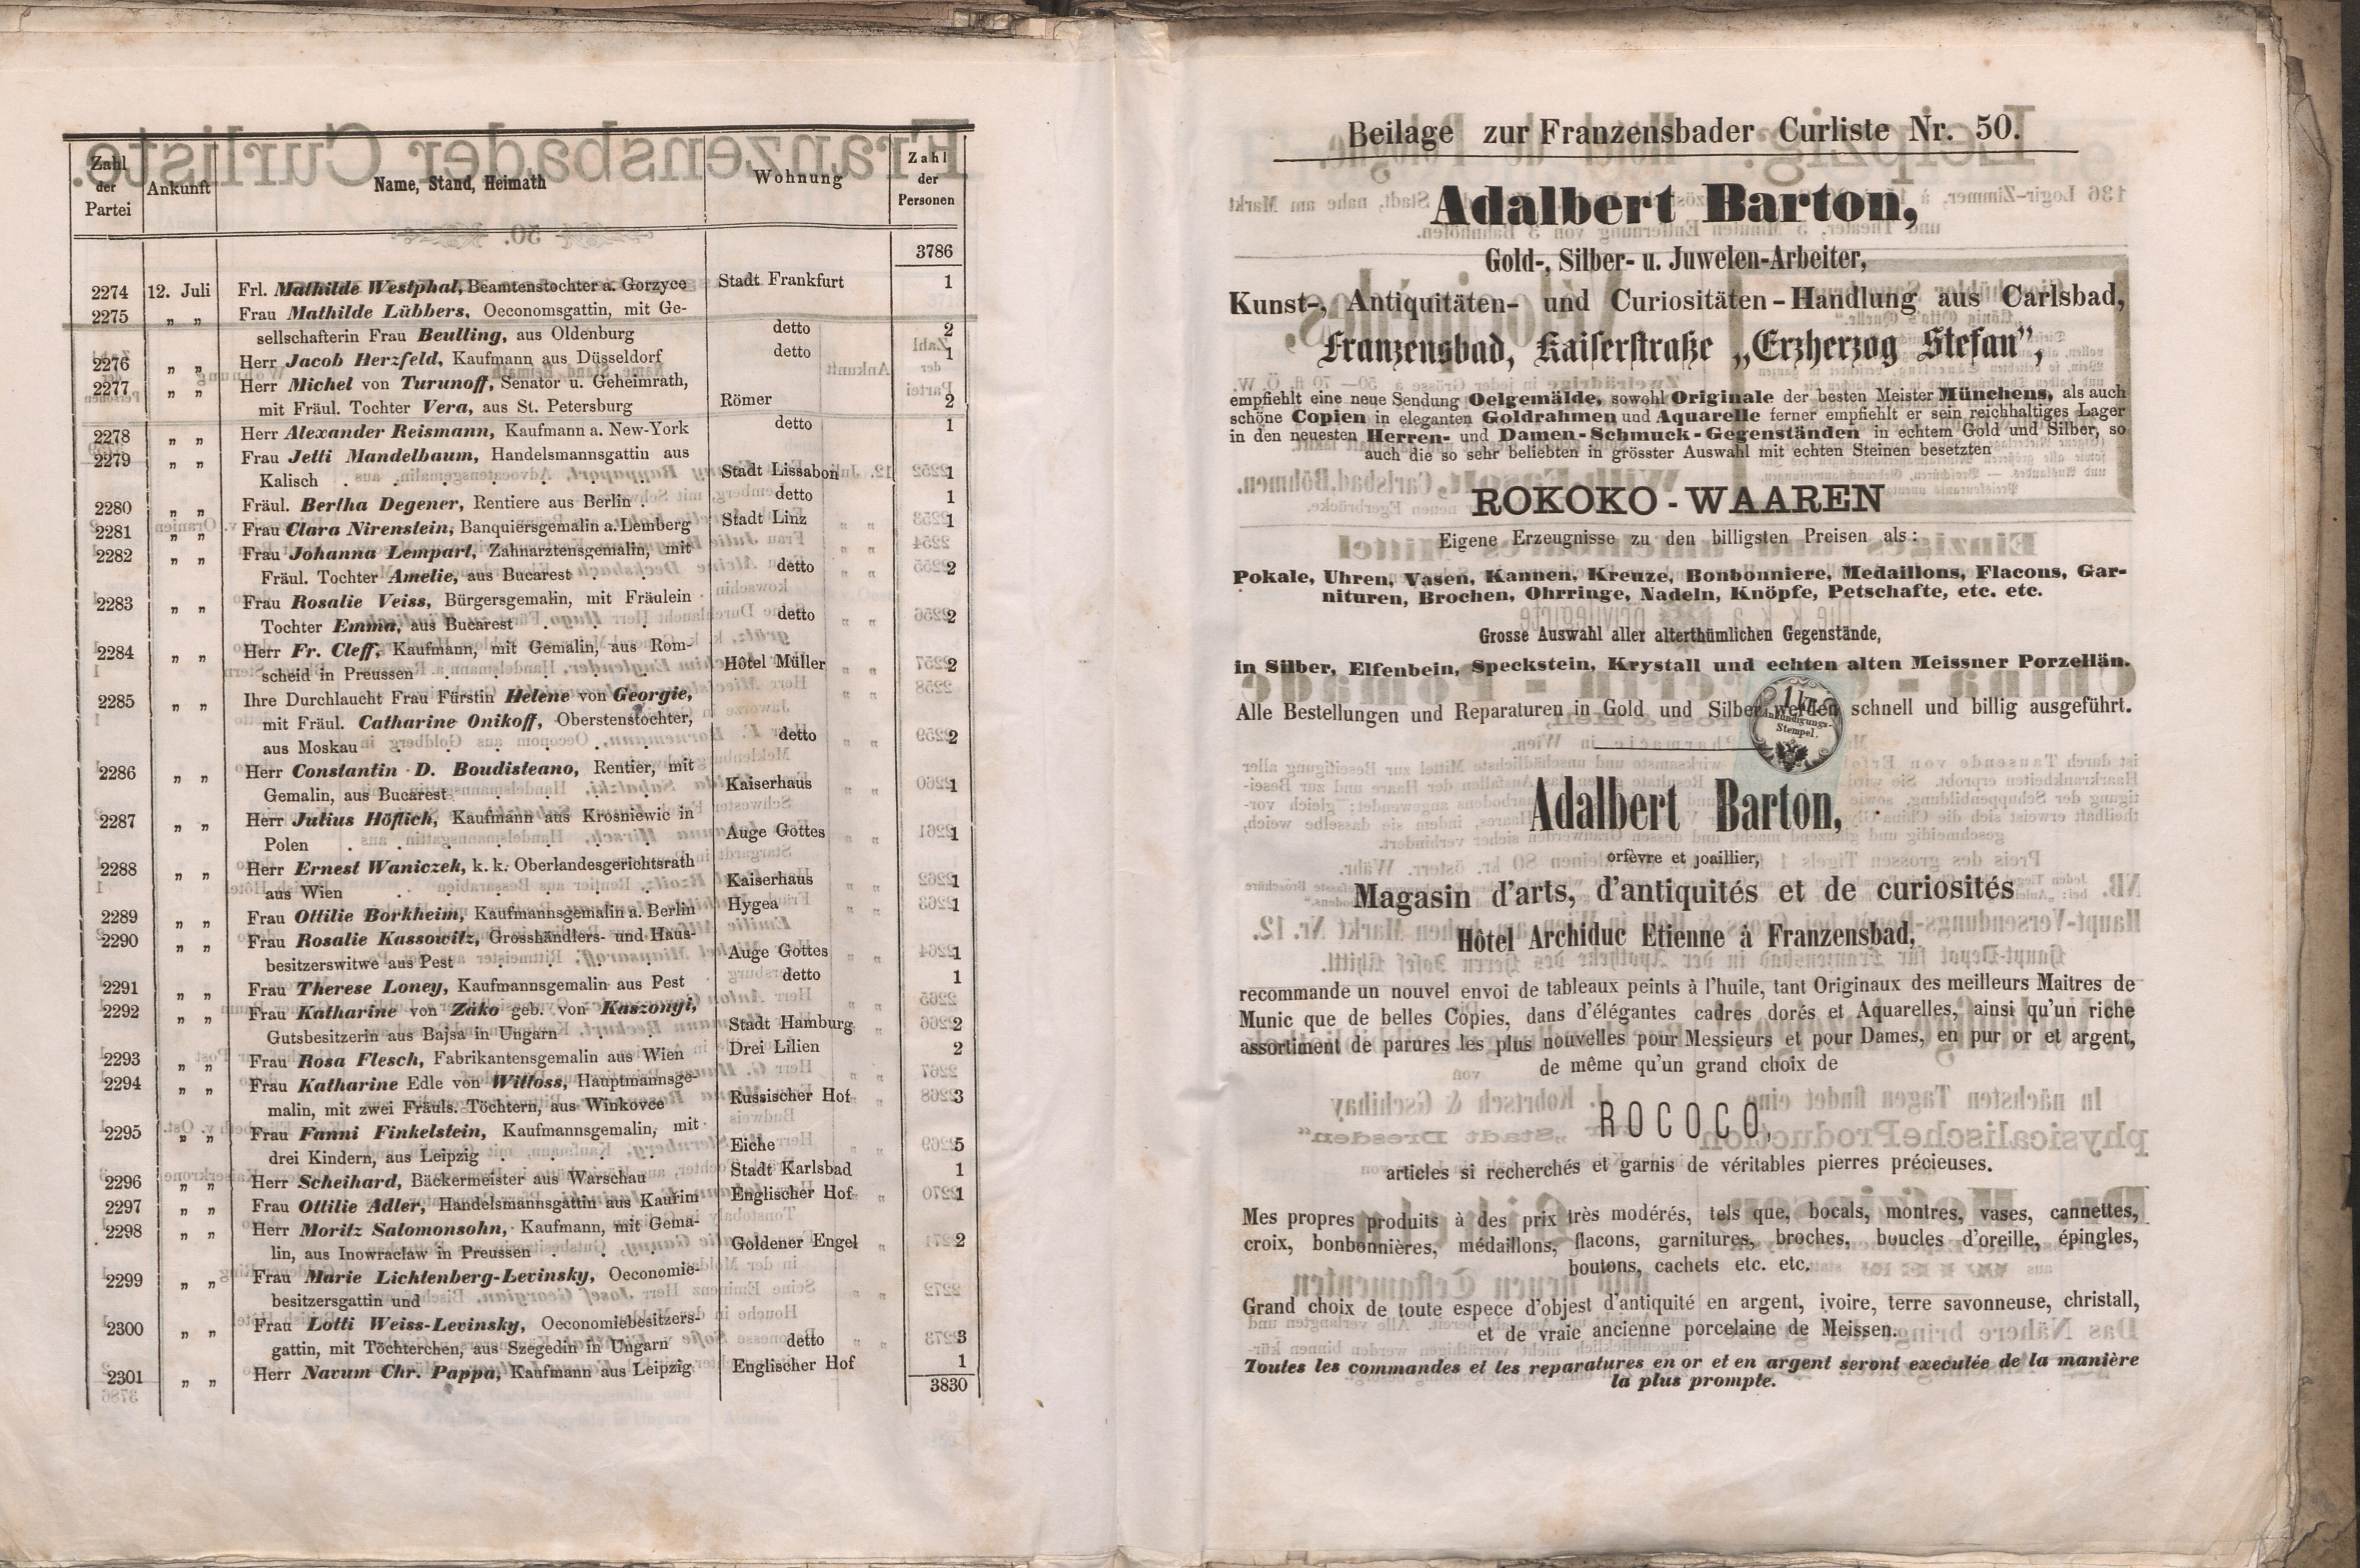 Zahl der Partei Ankunft Name, Stand, Heimath Wohnung Zahl der Personen
3786
2274 12. Juli Frl. Mathilde Westphal, Beamtenstochter a. Gorzyce Stadt Frankfurt 1
2275 „ „ Frau Mathilde Lübbers, Oeconomsgattin, mit Ge-
sellschafterin Frau Beulling, aus Oldenburg detto 2
2276 „ „ Herr Jacob Herzfeld, Kaufmann aus Düsseldorf detto 1
2277 „ „ Herr Michel von Turunoff, Senator u. Geheimrath,
mit Fräul. Tochter Vera, aus St. Petersburg Römer 2
2278 „ „ Herr Alexander Reismann, Kaufmann a. New-York detto 1
2279 „ „ Frau Jetti Mandelbaum, Handelsmannsgattin aus
Kalisch . . . . . . Stadt Lissabon 1
2280 „ „ Fräul. Bertha Degener, Rentiere aus Berlin . detto 1
2281 „ „ Frau Clara Nirenstein, Banquiersgemalin a. Lemberg Stadt Linz 1
2282 „ „ Frau Johanna Lempart, Zahnarztensgemalin, mit
Fräul. Tochter Amelie, aus Bucarest . . detto 2
2283 „ „ Frau Rosalie Veiss, Bürgersgemalin, mit Fräulein
Tochter Emma, aus Bucarest . . . detto 2
2284 „ „ Herr Fr. Cleff, Kaufmann, mit Gemalin, aus Rom-
scheid in Preussen . . . . . Hôtel Müller 2
2285 „ „ Ihre Durchlaucht Frau Fürstin Helene von Georgie,
mit Fräul. Catharine Onikoff, Oberstenstochter,
aus Moskau . . . . . . detto 2
2286 „ „ Herr Constantin D. Boudisteano, Rentier, mit
Gemalin, aus Bucarest . . . . Kaiserhaus 1
2287 „ „ Herr Julius Höflich, Kaufmann aus Krosniewic in
Polen . . . . . . Auge Gottes 1
2288 „ „ Herr Ernest Waniczek, k. k. Oberlandesgerichtsrath
aus Wien . . . . . Kaiserhaus 1
2289 „ „ Frau Ottilie Borkheim, Kaufmannsgemalin a. Berlin Hygea 1
2290 „ „ Frau Rosalie Kassowitz, Grosshändlers- und Haus-
besitzerswitwe aus Pest . . . . Auge Gottes 1
2291 „ „ Frau Therese Loney, Kaufmannsgemalin aus Pest detto 1
2292 „ „ Frau Katharine von Záko geb. von Kaszonyi,
Gutsbesitzerin aus Bajsa in Ungarn . . Stadt Hamburg 2
2293 „ „ Frau Rosa Flesch, Fabrikantensgemalin aus Wien Drei Lilien 2
2294 „ „ Frau Katharine Edle von Wittoss, Hauptmannsge-
malin, mit zwei Fräuls. Töchtern, aus Winkovce Russischer Hof 3
2295 „ „ Frau Fanni Finkelstein, Kaufmannsgemalin, mit
drei Kindern, aus Leipzig . . . . Eiche 5
2296 „ „ Herr Scheihard, Bäckermeister aus Warschau Stadt Karlsbad 1
2297 „ „ Frau Ottilie Adler, Handelsmannsgattin aus Kaurim Englischer Hof 1
2298 „ „ Herr Moritz Salomonsohn, Kaufmann, mit Gema-
lin, aus Inowraclaw in Preussen . . . Goldener Engel 2
2299 „ „ Frau Marie Lichtenberg-Levinsky, Oeconomie-
besitzersgattin und
2300 „ „ Frau Lotti Weiss-Levinsky, Oeconomiebesitzers-
gattin, mit Töchterchen, aus Szegedin in Ungarn detto 3
2301 „ „ Herr Navum Chr. Pappa, Kaufmann aus Leipzig Englischer Hof 1
3830
Beilage zur Franzensbader Curliste Nr. 50.
Adalbert Barton,
Gold-, Silber- u. Juwelen-Arbeiter,
Kunst-, Antiquitäten- und Curiositäten-Handlung aus Carlsbad,
Franzensbad, Kaiserstraße „Erzherzog Stefan”,
empfiehlt eine neue Sendung Oelgemälde, sowohl Originale der besten Meister Münchens, als auch
schöne Copien in eleganten Goldrahmen und Aquarelle ferner empfiehlt er sein reichhaltiges Lager
in den neuesten Herren- und Damen-Schmuck-Gegenständen in echtem Gold und Silber, so
auch die so sehr beliebten in grösster Auswahl mit echten Steinen besetzten
ROKOKO-WAAREN
Eigene Erzeugnisse zu den billigsten Preisen als:
Pokale, Uhren, Vasen, Kannen, Kreuze, Bonbonniere, Medaillons, Flacons, Gar-
nituren, Brochen, Ohrringe, Nadeln, Knöpfe, Petschafte, etc. etc.
Grosse Auswahl aller alterthümlichen Gegenstände,
in Silber, Elfenbein, Speckstein, Krystall und echten alten Meissner Porzellän.
Alle Bestellungen und Reparaturen in Gold und Silber werden schnell und billig ausgeführt.
1 kr.
Ankündigungs-
Stempel.
Adalbert Barton,
orfèvre et joaillier,
Magasin d'arts, d'antiquités et de curiosités
Hôtel Archiduc Etienne à Franzensbad,
recommande un nouvel envoi de tableaux peints à l'huile, tant Originaux des meilleurs Maitres de
Munic que de belles Copies, dans d'élégantes cadres dorés et Aquarelles, ainsi qu'un riche
assortiment de parures les plus nouvelles pour Messieurs et pour Dames, en pur or et argent,
de même qu'un grand choix de
ROCOCO,
articles si recherchés et garnis de véritables pierres précieuses.
Mes propres produits à des prix très modérés, tels que, bocals, montres, vases, cannettes,
croix, bonbonnières, médaillons, flacons, garnitures, broches, boucles d'oreille, épingles,
boutons, cachets etc. etc.
Grand choix de toute espece d'objest d'antiquité en argent, ivoire, terre savonneuse, christall,
et de vraie ancienne porcelaine de Meissen.
Toutes les commandes et les reparatures en or et en argent seront executée de la manière
la plus prompte.